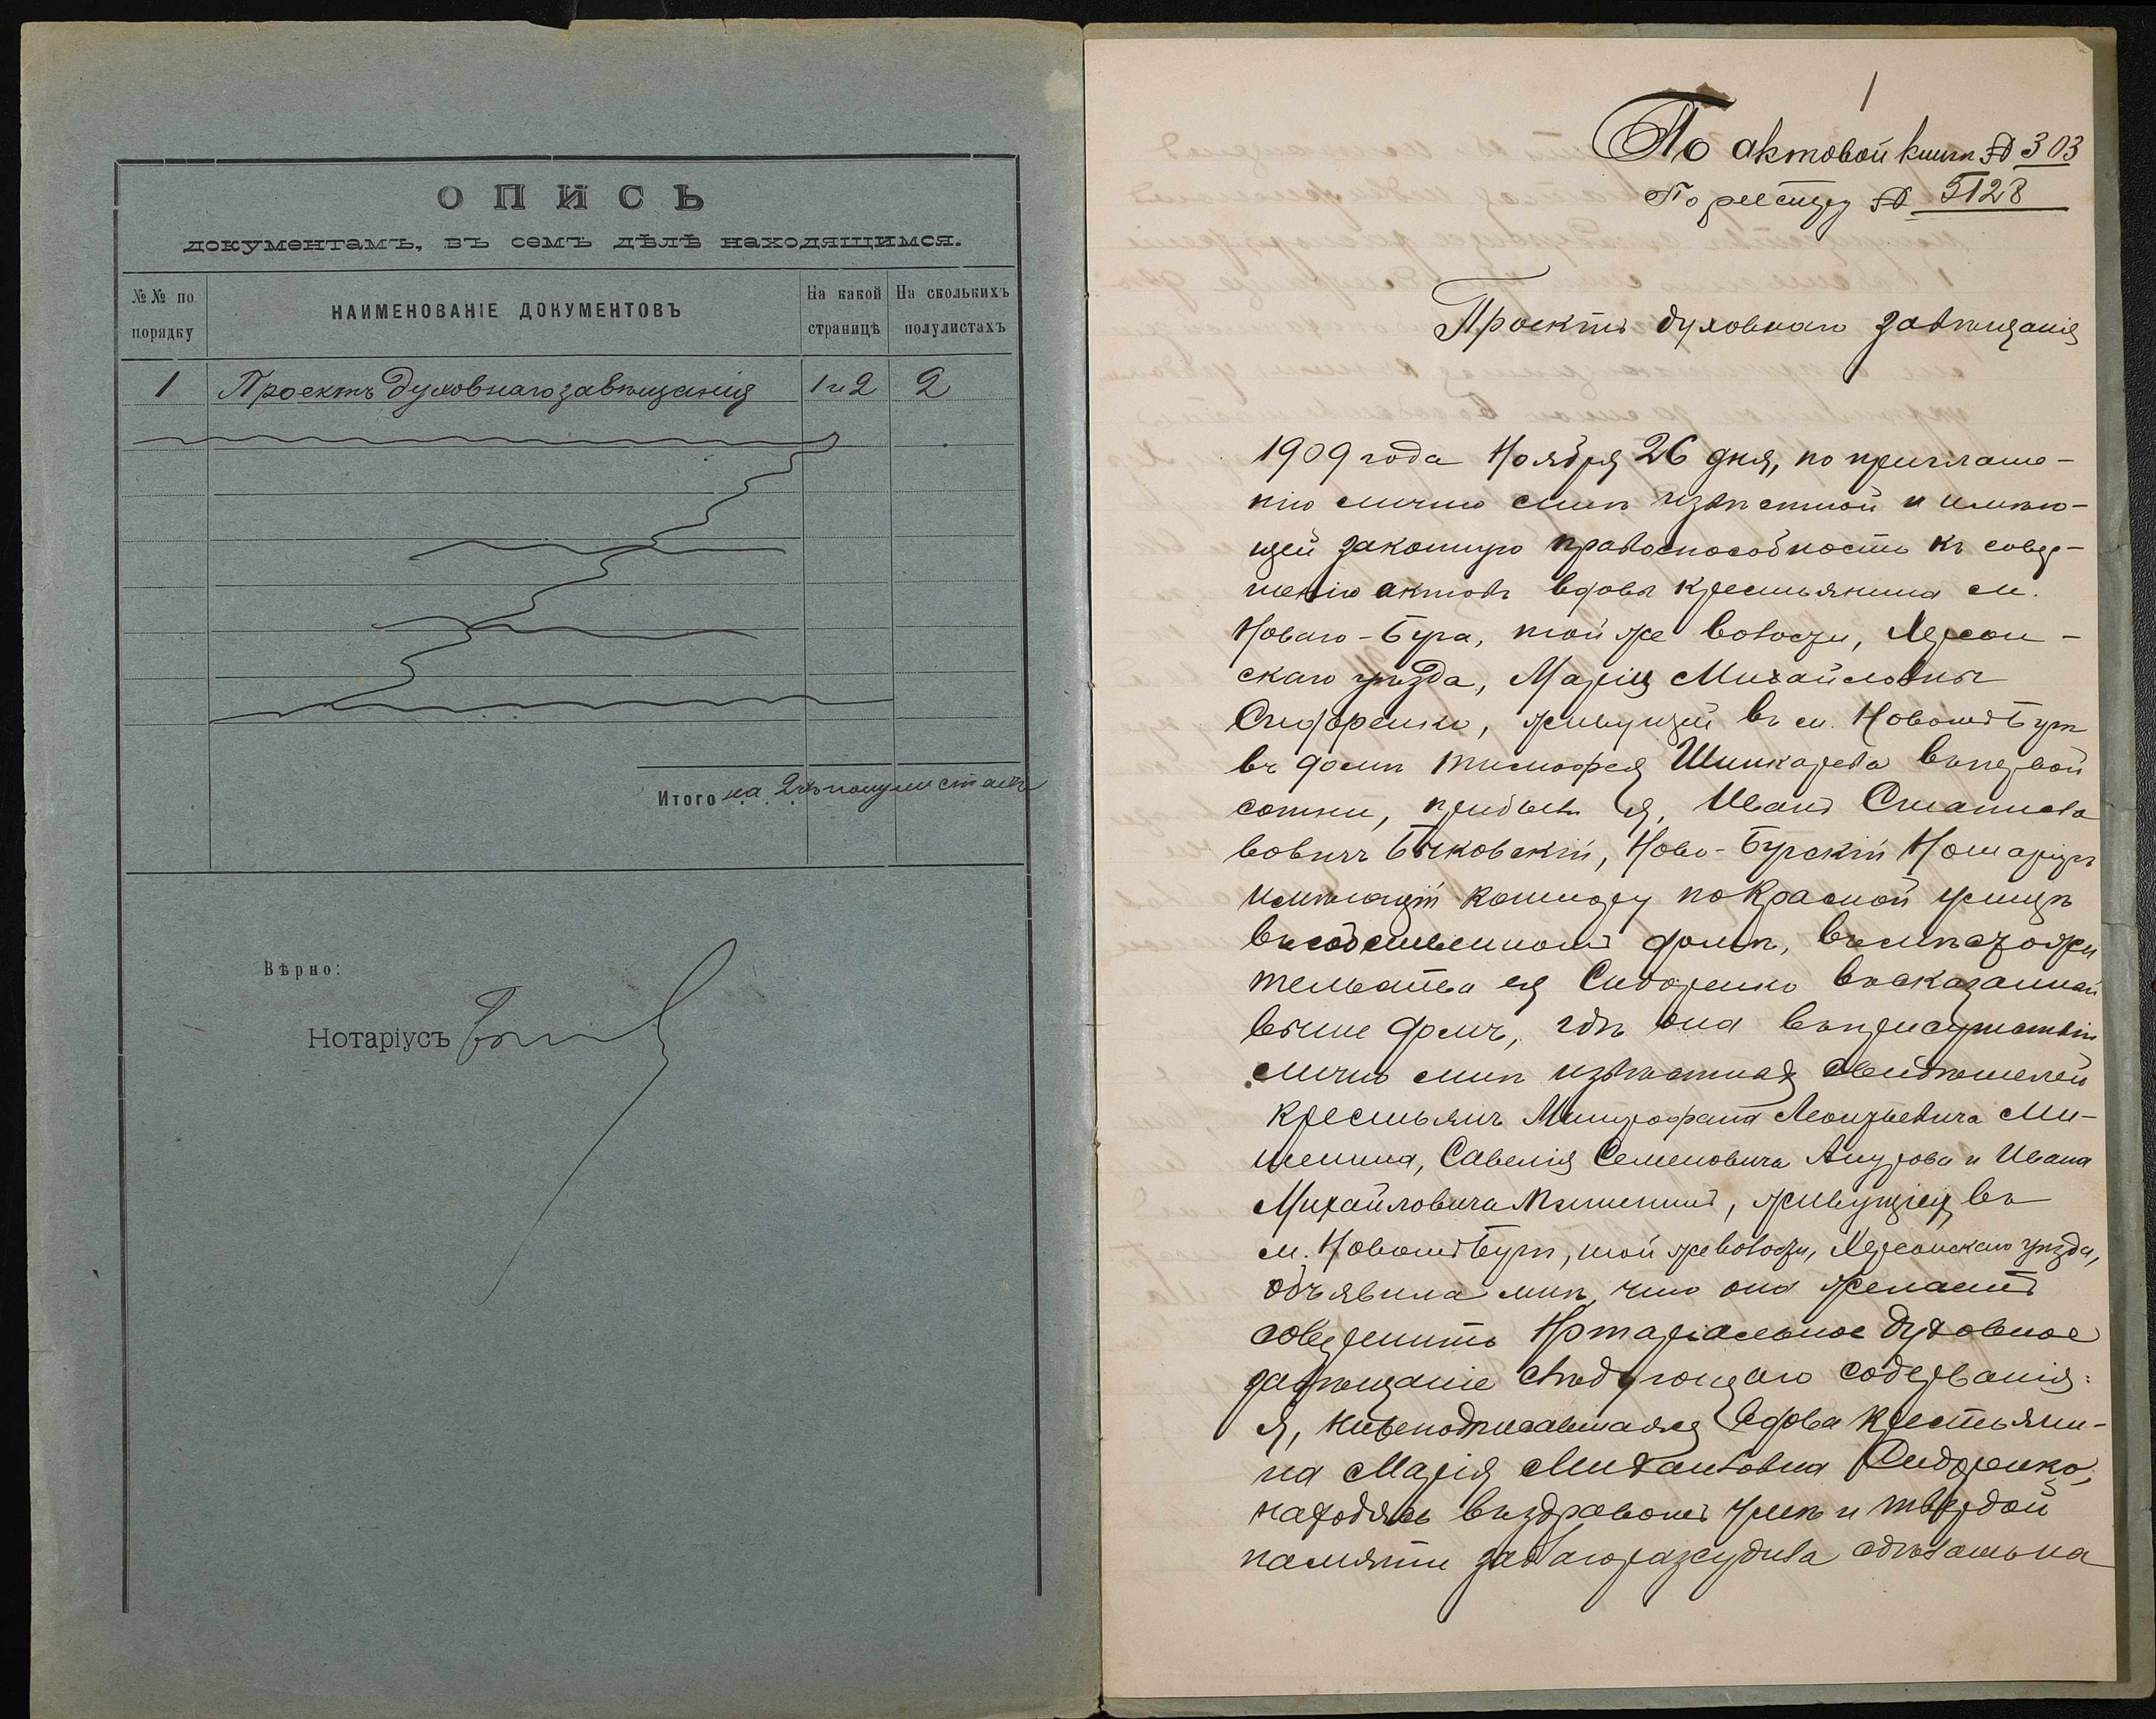 ОПИСЬ
документамъ, въ семъ дѣлѣ находящимся.
№№ по порядку
НАИМЕНОВАНІЕ ДОКУМЕНТОВЪ
На какой страницѣ
На сколькихъ полулистахъ
1 Проектъ духовнаго завѣщанія 1 и 2 2
Итого на 2хъ полулистахъ
Вѣрно:
Нотаріусъ
1
По актовой книгѣ № 303
По реестру № 5128
Проектъ духовнаго завѣщанія
1909 года Ноября 26 дня, по приглаше-
нію лично мнѣ извѣстной и имѣю-
щей законную правоспособность къ совер-
шенію актовъ вдовы крестьянина м.
Новаго-Буга, той же волости, Херсон-
скаго уѣзда, Маріи Михайловны
Сидоренко, живущей въ м. Новомъ Бугѣ
въ домѣ Тимофея Шинкарева въ первой
сотни, прибылъ я, Иванъ Станисла
вовичъ Бычковскій, Ново-Бугскій Нотаріусъ
имѣющій контору по Красной улицѣ
въ собственномъ домѣ, въ мѣсто жи
тельства ея Сидоренко въ сказанный
выше домъ, гдѣ она въ присутствіи
лично мнѣ извѣстныхъ свидѣтелей
крестьянъ Митрофана Леонтьевича Ми-
шенина, Савелія Семеновича и Ивана
Михайловича Мишенина, живущихъ въ
м. Новомъ Бугѣ, той же волости, Херсонскаго уѣзда,
объявила мнѣ, что она желаетъ
совершить Нотаріальное духовное
завѣщаніе слѣдующаго содержанія:
Я, нижеподписавшаяся вдова крестьяни-
на Марія Михайловна Сидоренко,
находясь въ здравомъ умѣ и твердой
памяти заблагоразсудила сдѣлать на